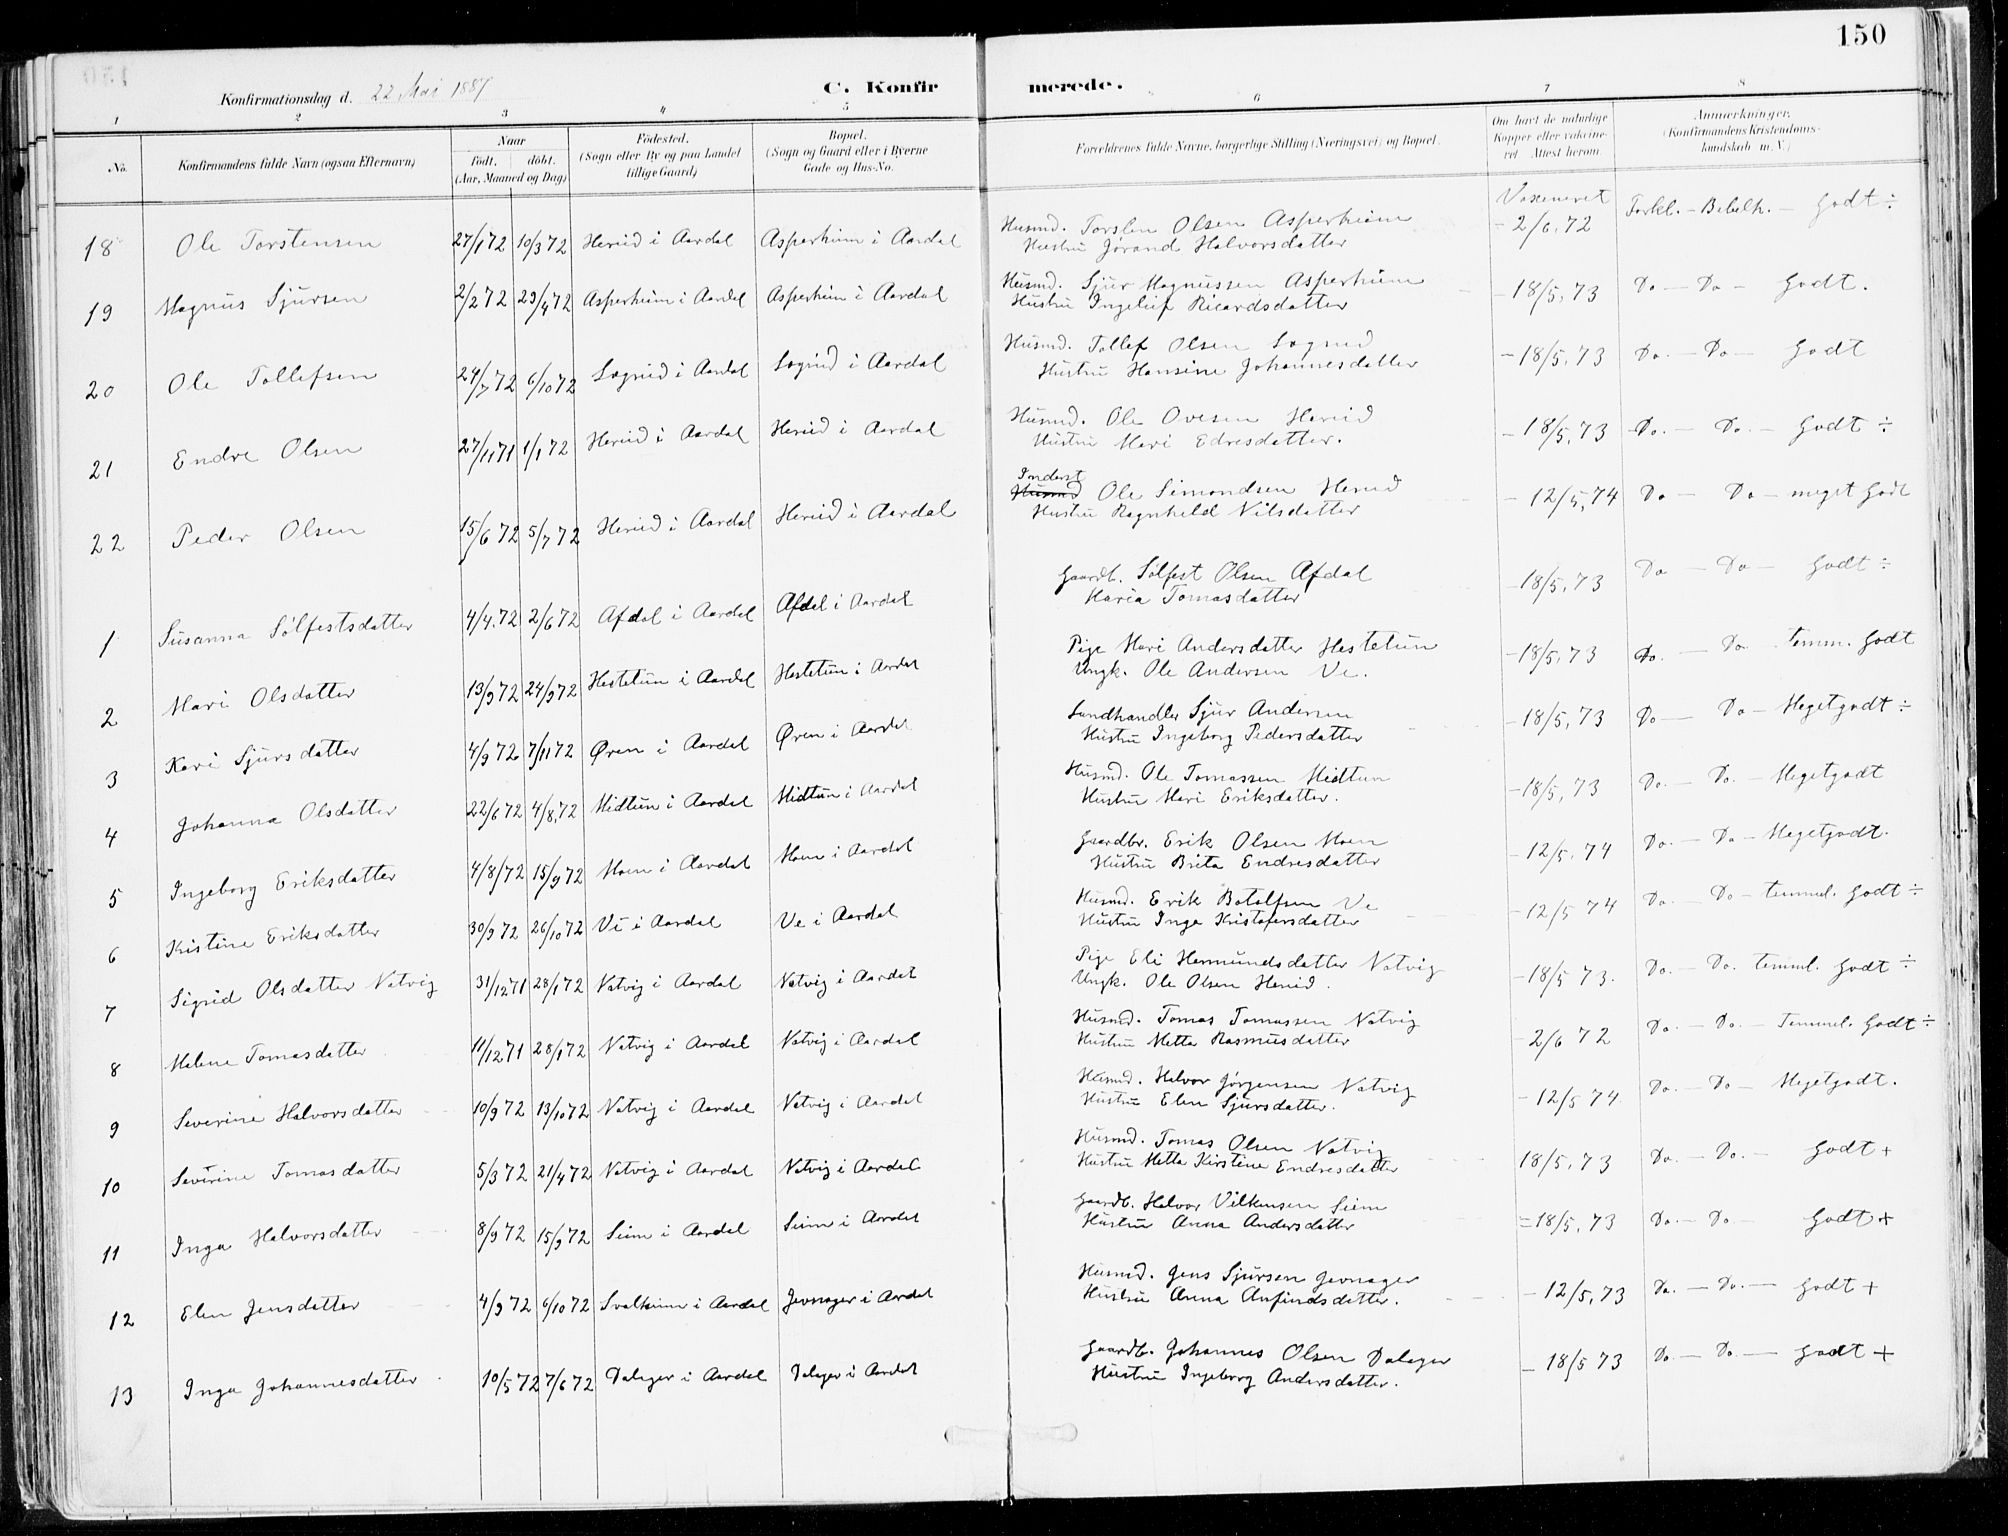 150
Konfirmationsdag d. 22 Mai 1887
C. Konfirmerede.
1 2 3 4 5 6 7 8
No.
Konfirmandens fulde Navn (ogsaa Efternavn)
Naar
født. døbt.
(Aar, Maaned og Dag)
Fødested.
(Sogn eller By og paa Landet
tillige Gaard)
Bopæl.
(Sogn og Gaard eller i Byerne
Gade og Hus-No.
Forældrenes fulde Navne, borgerlige Stilling (Næringsvei) og Bopæl.
Om havt de naturlige
Kopper eller vakcine-
ret. Attest herom.
Anmærkninger.
(Konfirmandens Kristendoms-
kundskab m. V.)
18 Ole Torstensen 27/1 72 10/3 72 Herud i Aardal Asperheim i Aardal Husmd. Torsten Olsen Asperheim Vaxeneret - 2/6, 72 Forkl. - Bibelh. - Godt ÷
Hustru Jørand Halvorsdatter
19 Magnus Sjursen 2/2 72 29/4 72 Asperheim i Aardal Asperheim i Aardal Husmd. Sjur Magnussen Asperheim - 18/5, 73 Do - Do - Godt.
Hustru Ingeleif Ricardsdatter
20 Ole Tollefsen 24/7 72 6/10 72 Lægrid i Aardal Lægrid i Aardal Husmd. Tollef Olsen Lægrid - 18/5, 73 Do. - Do - Godt
Hustru Hansine Johannesdatter
21 Endre Olsen 27/11 71 1/1 72 Hereid i Aardal Hereid i Aardal Husmd. Ole Ovesen Hereid - 18/5, 73 Do. - Do. - Godt ÷
Hustru Mari Edresdatter.
22 Peder Olsen 15/6 72 5/7 72 Hereid i Aardal Hereid i Aardal Inderst Husmd Ole Simondsen Hereid - 12/5, 74 Do - Do - meget godt
Hustru Ragnheld Nilsdatter
1 Susanna Sølfestsdatter 4/4. 72 2/6 72 Afdal i Aardal Afdal i Aardal Gaardb. Sølfest Olsen Afdal - 18/5, 73 Do - Do - Godt ÷
Maria Tomasdatter
2 Mari Olsdatter 13/9 72 24/9 72 Hestetun i Aardal Hestetun i Aardal Pige Mari Andersdatter Hestetun - 18/5, 73 Do. - Do. temm. Godt
Ungk. Ole Andersen Ve.
3 Kari Sjursdatter 4/9 72 7/11 72 Øren i Aardal Øren i Aardal Landhandler Sjur Andersen - 18/5, 73 Do - Do - Megetgodt ÷
Hustru Ingeborg Pedersdatter
4 Johanna Olsdatter 22/6 72 4/8, 72 Midtun i Aardal Midtun i Aardal Husmd. Ole Tomassen Midtun - 18/5, 73 Do. - Do. - Megetgodt
Hustru Mari Eriksdatter.
5 Ingeborg Eriksdatter 4/8/72 15/9 72 Moen i Aardal Moen i Aardal Gaardbr. Erik Olsen Moen - 12/5, 74 Do. - Do - Megetgodt.
Hustru Brita Endresdatter
6 Kistine Eriksdatter 30/9 72 26/10 72 Vi i Aardal Ve i Aardal Husmd. Erik Botolfsen Ve - 12/5 74 Do. - Do - temmel. Godt ÷
Hustru Inga Kristofersdatter
7 Sigrid Olsdatter Natvig 31/12 71 28/1 72 Natvig i Aardal Natvig i Aardal Pige Eli Hermundsdatter Natvig - 18/5 73. Do. - Do. temml. Godt ÷
Ungk. Ole Olsen Hereid.
8 Malene Tomasdatter 11/12 71 28/1 72 Natvig i Aardal Natvig i Aardal Husmd. Tomas Tomassen Natvig - 2/6 72 Do. - Do. - Temmel. Godt ÷
Hustru Metta Rasmusdatter
9 Severine Halvorsdatter 10/9 72 13/10 72 Natvig i Aardal Natvig i Aardal Husmd. Halvor Jørgensen Natvig - 12/5 74 Do. - Do - Megetgodt.
Hustru Elen Sjursdatter.
10 Severine Tomasdatter 5/3 72 21/4 72 Natvig i Aardal Natvig i Aardal Husmd. Tomas Olsen Natvig 18/5, 73 Do. - Do. - Godt +
Hustru Metta Kirstine Endresdatter
11 Inga Halvorsdatter 8/9 72 15/9 72 Seim i Aardal Seim i Aardal Gaardb. Halvor Vilkensen Seim - 18/5, 73 Do. - Do. - Godt +
Hustru Anna Andersdatter
12 Elen Jensdatter 4/9 72 6/10 72 Svalheim i Aardal Jevnager i Aardal Husmd. Jens Sjursen Jevnager - 12/5, 73 Do. - Do. - Godt +
Hustru Anna Anfindsdatter.
13 Inga Johannesdatter 10/5 72 7/6 72 Dalager i Aardal Dalager i Aardal Gaardb. Johannes Olsen Dalager - 18/5 73 Do - Do. - Godt +
Hustru Ingeborg Andersdatter.